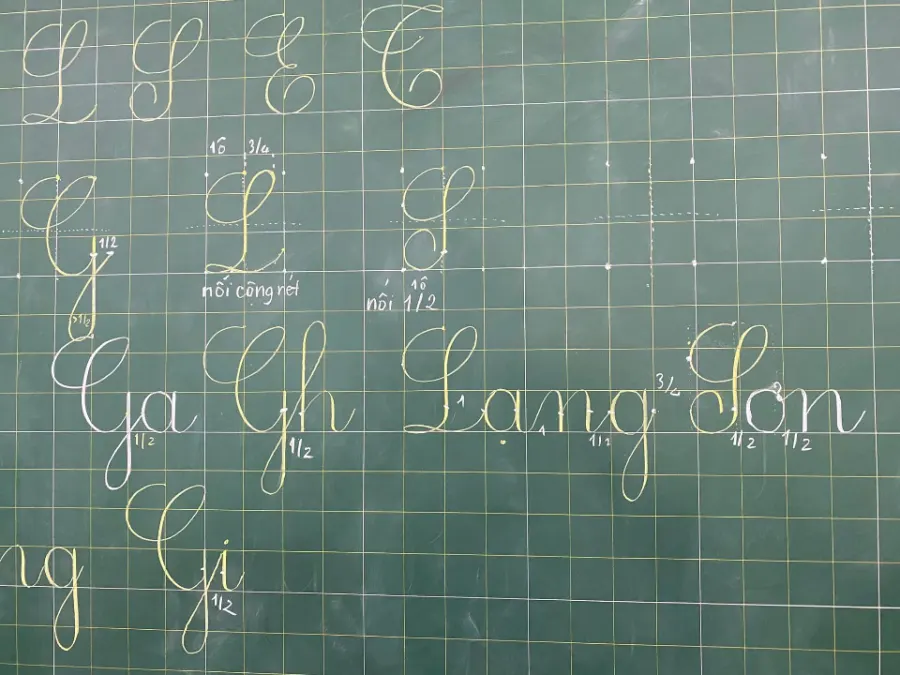 L S E C
1ô 3/4
G L S
1/2
>1/2
nối cộng nét
1ô
nối 1/2
Ga Gh Lạng Sơn
1/2 1/2 1 1 1/2 3/4 1/2 1/2
ng Gi
1/2